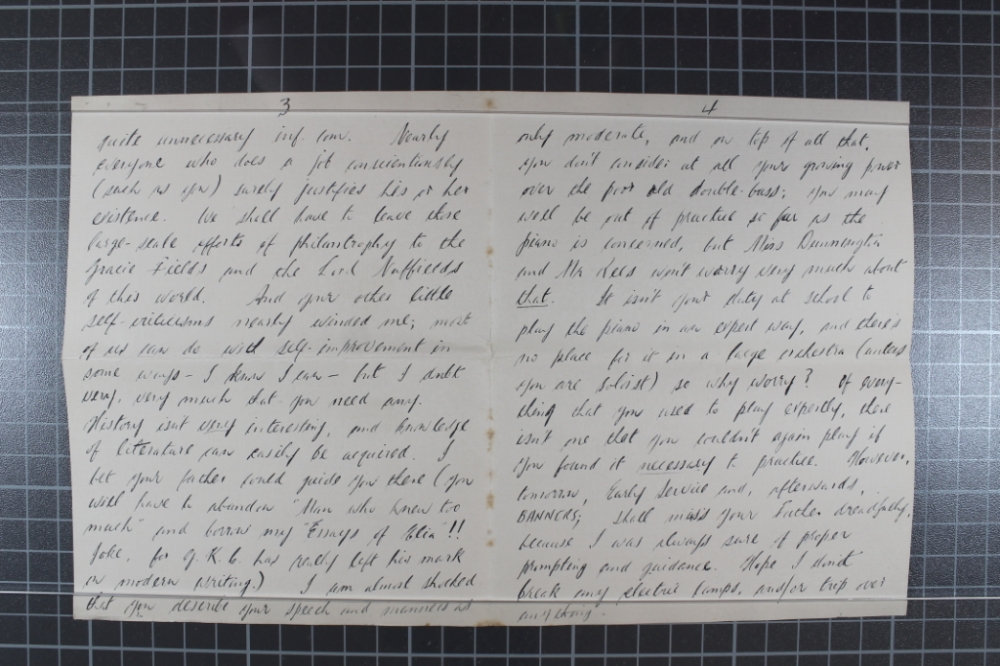 3
quite unnecessary inf. com. Nearly
everyone who does a job conscientiously
(such as you) surely justifies his or her
existence. We shall have to leave these
large-scale efforts of philantrophy to the
Gracie Fields and the Lord Nuffields
of this world. And your other little
self-criticisms nearly winded me; most
of us can do with self-improvement in
some ways - I know I can - but I doubt
very, very much that you need any.
History isn't very interesting, and knowledge
of literature can easily be acquired. I
bet your father could guide you there (you
will have to abandon "Man who knew too
much" and borrow my "Essays of Elia"!!
Joke, for G.K.C. has really left his mark
on modern writing.) I am almost shocked
that you describe your speech and manners as
4
only moderate, and on top of all that,
you don't consider at all your growing power
over the poor old double-bass; you may
well be out of practice so far as the
piano is concerned, but Miss Dunnington
and Mr Lees won't worry very much about
that. It isn't your duty at school to
play the piano in an expert way, and there's
no place for it in a large orchestra (unless
you are soloist) so why worry? Of every-
thing that you used to play expertly, there
isn't one that you couldn't again play if
you found it necessary to practice. However,
tomorrow, Early Service and, afterwards,
BANNERS; shall miss your Father dreadfully,
because I was always sure of proper
prompting and guidance. Hope I don't
break any electric lamps, and/or trip over
anything.